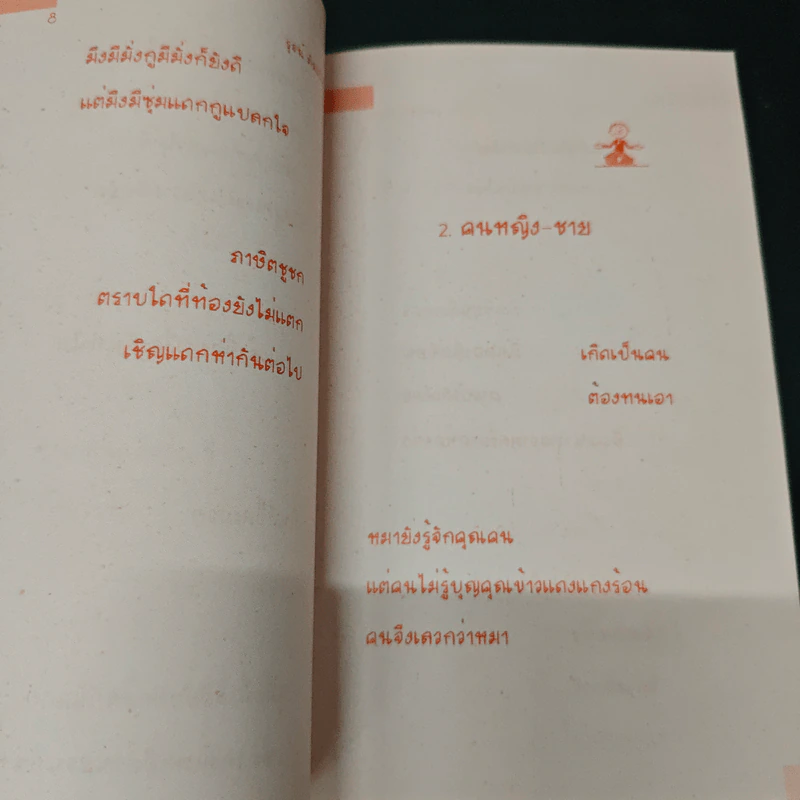 8
มึงมีมั่งกูมีมั่งก็ยังดี
แต่มึงมีซุ่มแดกกูแปลกใจ
ภาษิตชูชก
ตราบใดที่ท้องยังไม่แตก
เชิญแดกห่ากันต่อไป
2. คนหญิง-ชาย
เกิดเป็นคน
ต้องทนเอา
หมายังรู้จักคุณคน
แต่คนไม่รู้บุญคุณข้าวแดงแกงร้อน
คนจึงเลวกว่าหมา